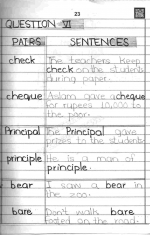 23
QUESTION VI
PAIRS SENTENCES
check The teachers keep
check on the students
during paper.
cheque Aslam gave a cheque
for rupees 10,000 to
the poor.
Principal The Principal gave
prizes to the students.
principle He is a man of
principle.
bear I saw a bear in
the zoo.
bare Don't walk bare
footed on the road.